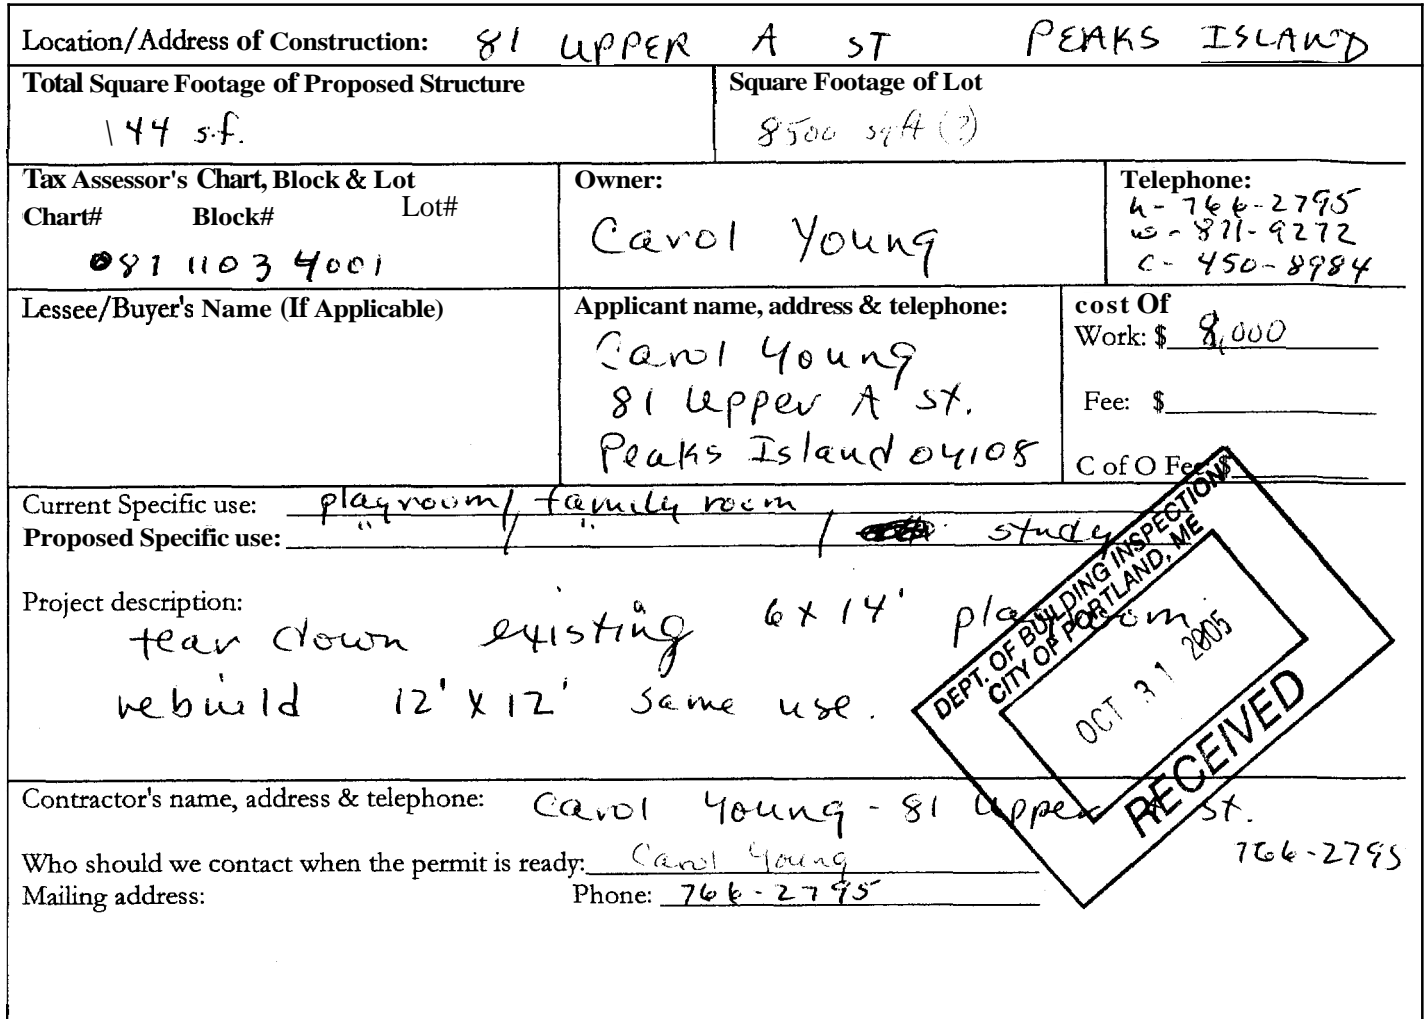 Location/Address of Construction: 81 UPPER A ST PEAKS ISLAND
Total Square Footage of Proposed Structure
144 s.f.
Square Footage of Lot
8500 sqft (?)
Tax Assessor's Chart, Block & Lot
Chart# Block# Lot#
081 1103 4001
Owner:
Carol Young
Telephone:
h- 766-2795
w- 871-9272
c- 450-8984
Lessee/Buyer's Name (If Applicable)
Applicant name, address & telephone:
Carol Young
81 Upper A St.
Peaks Island 04108
cost Of
Work: $ 8,000
Fee: $
C of O Fee: $
Current Specific use: playroom/ family room
Proposed Specific use: " / " / study
Project description:
tear down existing 6 x 14' playroom.
rebuild 12' x 12' same use.
DEPT. OF BUILDING INSPECTIONS
CITY OF PORTLAND, ME
OCT 31 2005
RECEIVED
Contractor's name, address & telephone: Carol Young - 81 Upper A St.
766-2795
Who should we contact when the permit is ready: Carol Young
Mailing address: Phone: 766-2795